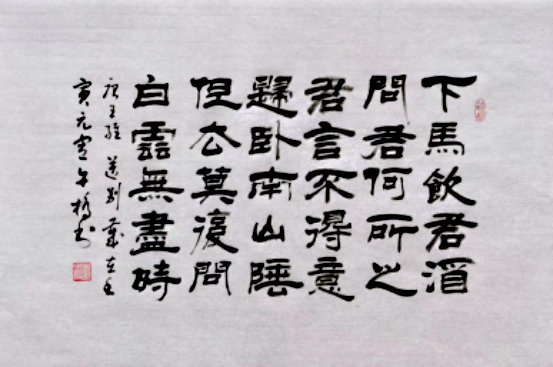 下馬飲君酒
問君何所之
君言不得意
歸卧南山陲
但去莫復問
白雲無盡時
唐王維 送别 歲在壬
寅元宵書